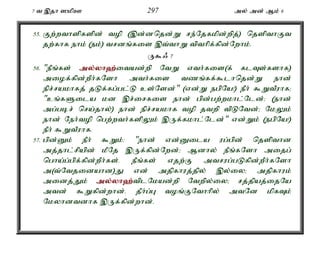 7 வ இதா ஸமிஊ 297 அல் அன் ஆம் 6
55. குற்றவாளிகளின் வழி (இன்னதென்று சந்தேகமின்றித்) தெளிவாகுவ
தற்காக நாம் (நம்) வசனங்களை இவ்வாறு விவரிக்கின்றோம்.
ருகூஃ 7
56. "நீங்கள் அல்லாஹ்வையன்றி வேறு எவர்களை(க் கடவுள்களாக)
அழைக்கின்றீர்களோ அவர்களை வணங்கக்கூடாதென்று நான்
நிச்சயமாகத் தடுக்கப்பட்டு உள்ளேன்" (என்று நபியே) நீர் கூறுவீராக;
"உங்களுடைய மன இச்சைகளை நான் பின்பற்றமாட்டேன்; (நான்
அப்படிச் செய்தால்) நான் நிச்சயமாக வழி தவறி விடுவேன்; மேலும்
நான் நேர்வழி பெற்றவர்களிலும் இருக்கமாட்டேன்" என்றும் (நபியே)
நீர் கூறுவீராக.
57. பின்னும் நீர் கூறும்: "நான் என்னுடைய ரப்பின் தெளிவான
அத்தாட்சியின் மீதே இருக்கின்றேன்; ஆனால் நீங்களோ அதைப்
பொய்ப்பிக்கின்றீர்கள். நீங்கள் எதற்கு அவசரப்படுகின்றீர்களோ
அ(வ்வேதனையான)து என் அதிகாரத்தில் இல்லை; அதிகாரம்
அனைத்தும் அல்லாஹ்விடமேயன்றி வேறில்லை; சத்தியத்தையே
அவன் கூறுகின்றான். தீர்ப்பு வழங்குவோரில் அவனே மிகவும்
மேலானவனாக இருக்கின்றான்.